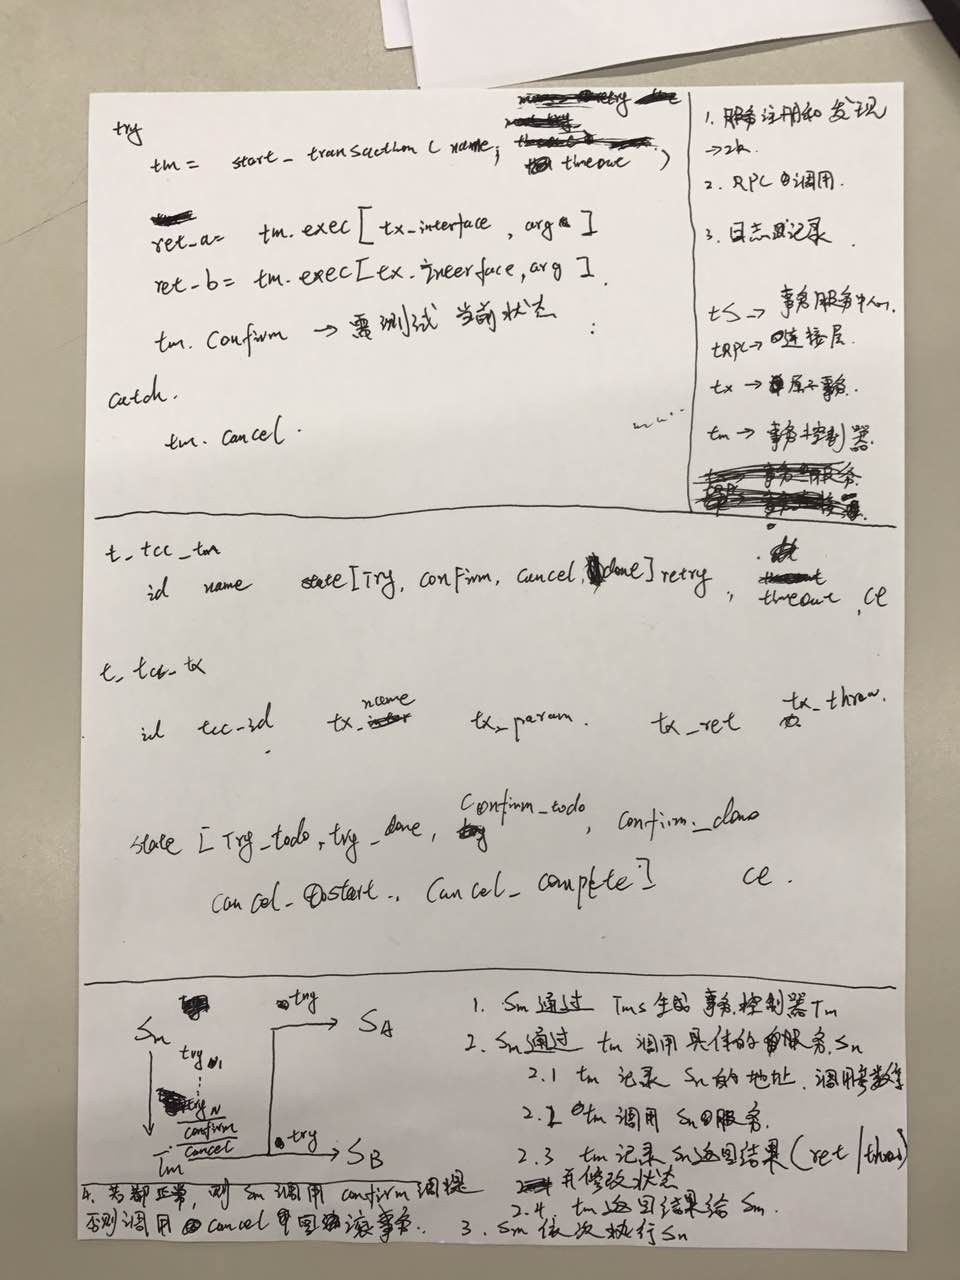 try
tm = start_transaction ( name, timeout )
ret_a = tm.exec [ tx_interface , arg ]
ret_b = tm.exec [ tx_interface, arg ] .
tm. Confirm → 需测试 当前状态
catch.
tm. cancel .
1. 服务注册和发现
→ zk.
2. RPC 调用.
3. 日志记录
tS → 事务服务中心.
tRPC → 连接层.
tx →
tm → 事务控制器
t_tcc_tm
id name state [Try, confirm, cancel, done] retry, timeout , ce
t_tcc_tx
id tcc_id tx_name tx_param. tx_ret tx_throw.
state [ Try_todo, try_done, Confirm_todo, confirm_done
cancel_start., Cancel_complete ] ce .
try
Sn → SA
try 1
try N
confirm
cancel
try
Tm → SB
1. Sm 通过 Tms 生成 事务控制器 Tm
2. Sm 通过 tm 调用 具体的 服务 Sn
2.1 tm 记录 Sn 的 地址. 调用参数
2.2 tm 调用 Sn 服务.
2.3 tm 记录 Sn 返回结果 (ret / throw)
并修改状态
2.4. tm 返回结果给 Sm.
3. Sm 依次执行 Sn
4. 若都正常, 则 Sm 调用 confirm 提
否则调用 cancel 回滚事务.